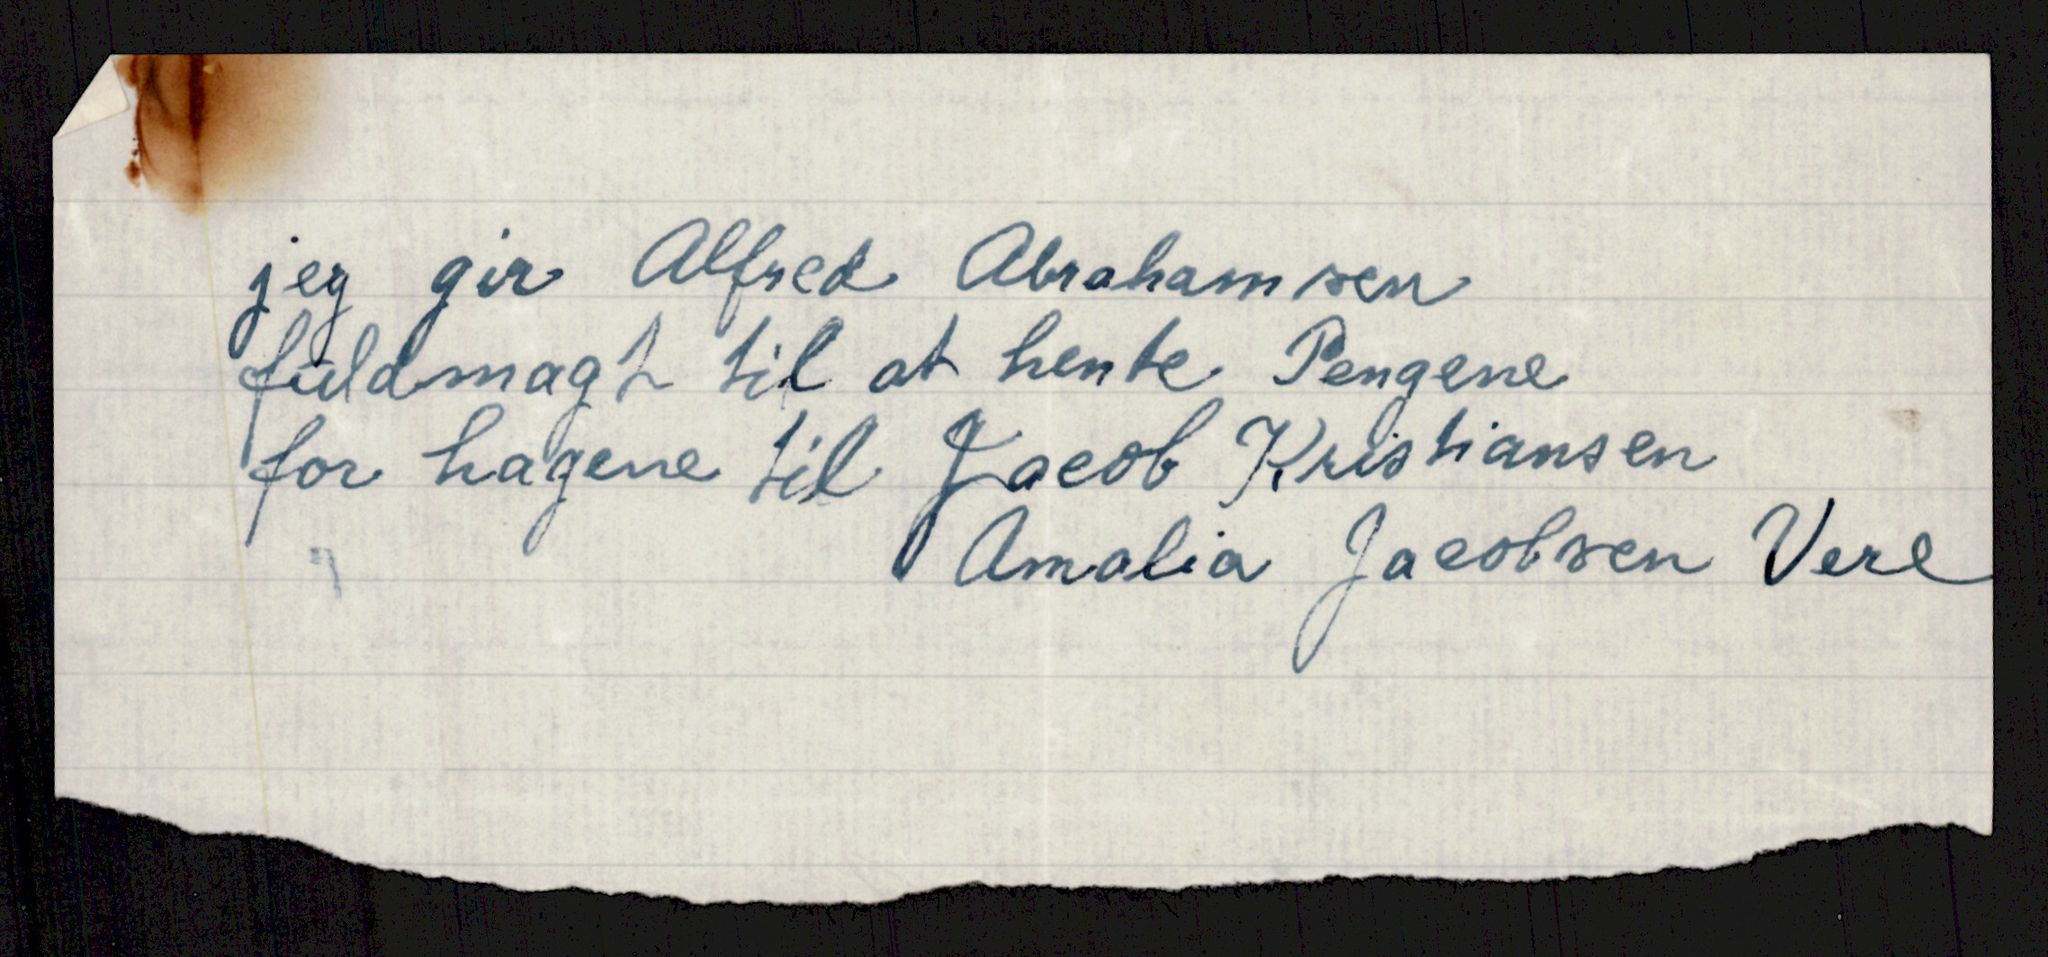 jeg gir Alfred Abrahamsen
fuldmagt til at hente Pengene
for hagene til Jacob Kristiansen
Amalia Jacobsen Vere